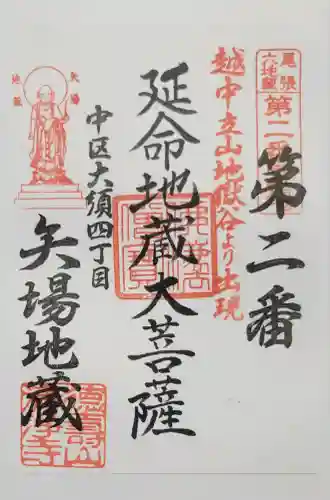 尾張
六地蔵
第二番
第二番
越中立山地獄谷より出現
延命地蔵大菩薩
中区大須四丁目
矢場
地蔵
矢場地蔵